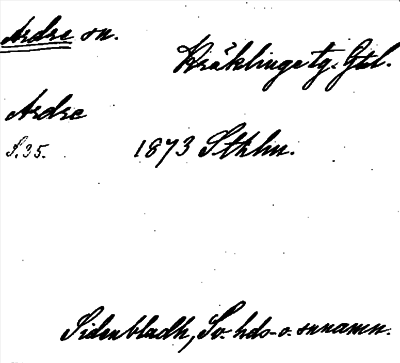 Ardre sn.
Kräklinge tg. Gtl.
Ardre
S. 35.
1873 Sthlm.
Sidenbladh, Sv. hds- o. snnamn.